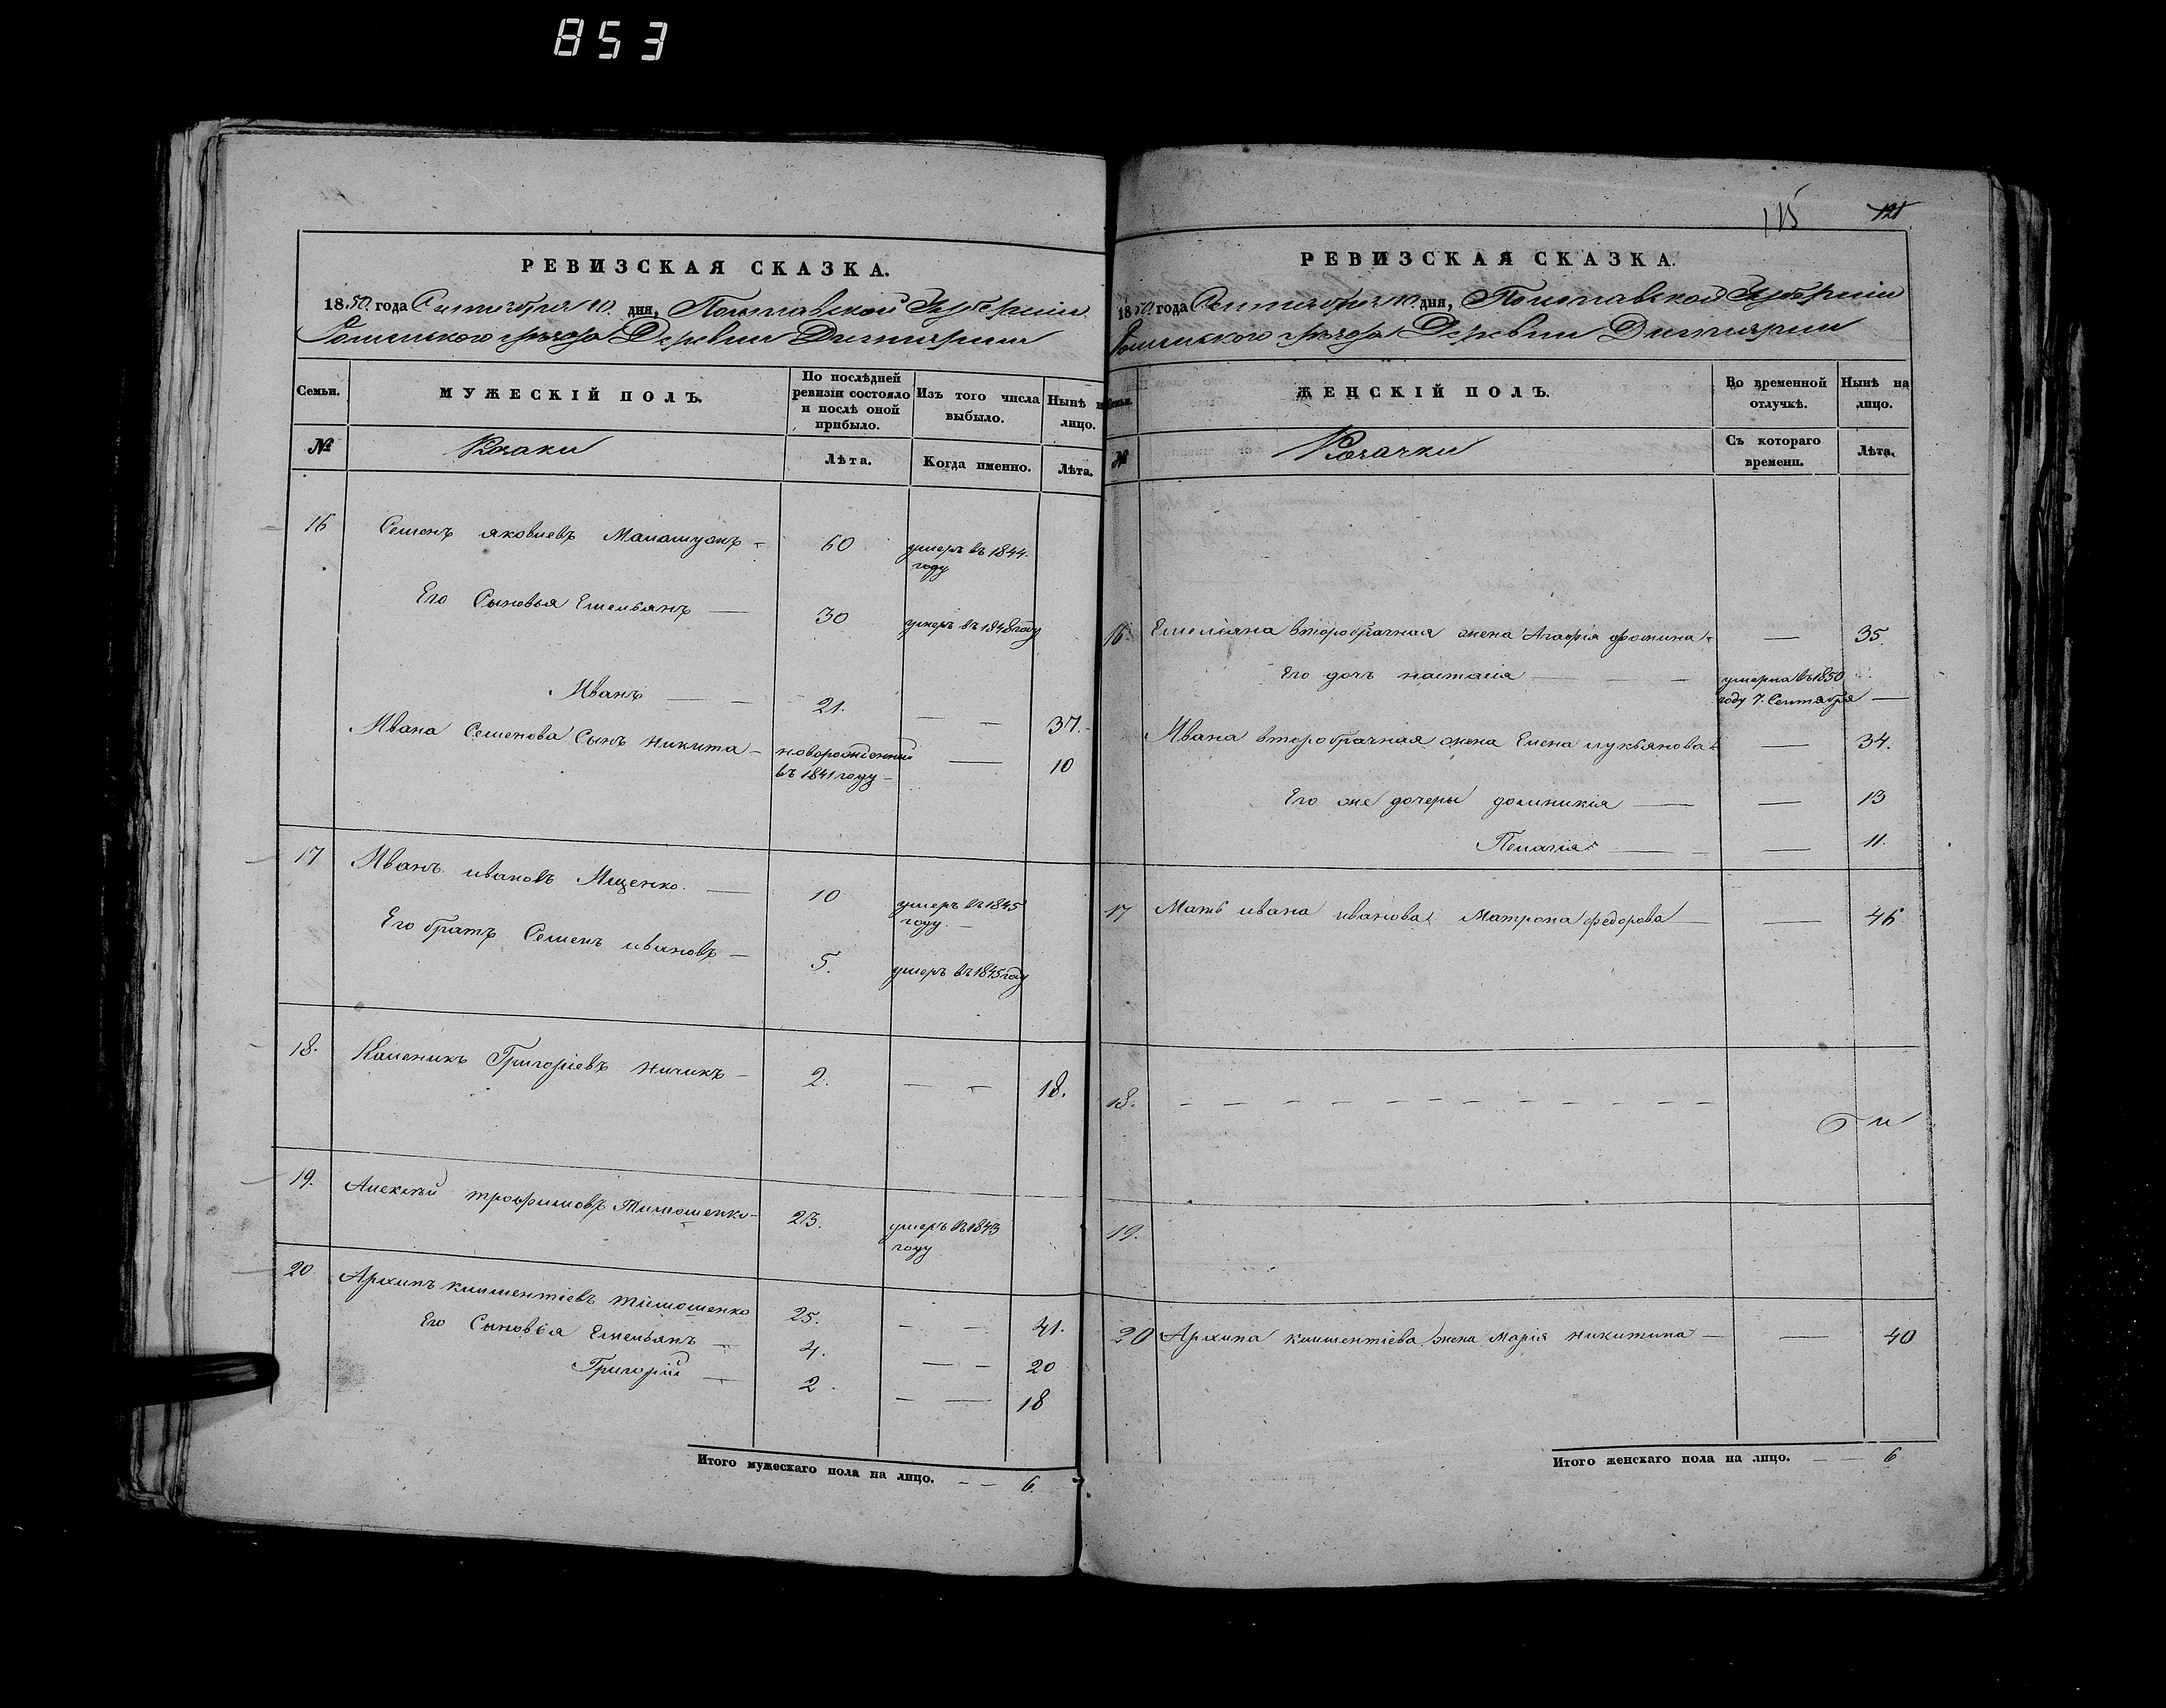 853
115 121
РЕВИЗСКАЯ СКАЗКА.
1850. года Сентября 10. дня, Полтавской Губерніи
Роменского уѣзда Деревни Дигтярни
Семьи.
МУЖЕСКІЙ ПОЛЪ.
По послѣдней ревизіи состояло и послѣ оной прибыло.
Изъ того числа выбыло.
Нынѣ на лицо.
№
Козаки
Лѣта.
Когда именно.
Лѣта.
16 Семенъ яковлевъ — 60 умеръ въ 1844.
году
Его Сыновья Емельянъ — 30 умеръ въ 1848 году
Иванъ — — 21. — — 37.
Ивана Семенова Сынъ никита — новорожденный — 10
въ 1841 году —
17 Иванъ ивановъ Мищенко. — 10 умеръ въ 1845
году. —
Его братъ Семенъ ивановъ — 5. умеръ въ 1845 году
18. Каленикъ Григоріевъ ничикъ — 2. — — 18.
19. Алексѣй трофимовъ Тимошенко — 23. умеръ въ 1843
году
20 Архипъ климентіевъ тимошенко 25. — — 41.
Его Сыновья Емельянъ — 4. — — 20
Григорій — 2. — — 18
Итого мужескаго пола на лицо. — — 6.
РЕВИЗСКАЯ СКАЗКА.
1850. года Сентября 10. дня, Полтавской Губерніи
Роменского уѣзда Деревни Дигтярни
Семьи.
ЖЕНСКІЙ ПОЛЪ.
Во временной отлучкѣ.
Нынѣ на лицо.
№
Козачки
Съ котораго времени.
Лѣта.
16 Емельяна второбрачная жена Агафія фомина — — 35.
Его дочь настасія — — — умерла въ 1850
году 7. Сентября —
Ивана второбрачная жена Елена лукьянова — — 34.
Его же дочеры домникія — — 13
Пелагія — — — 11.
17 Мать ивана иванова Матрона федорова — — 46
18. — — — — — — — — — — —
19.
20 Архипа климентіева жена Марія никитина — — 40
Итого женскаго пола на лицо. — — 6